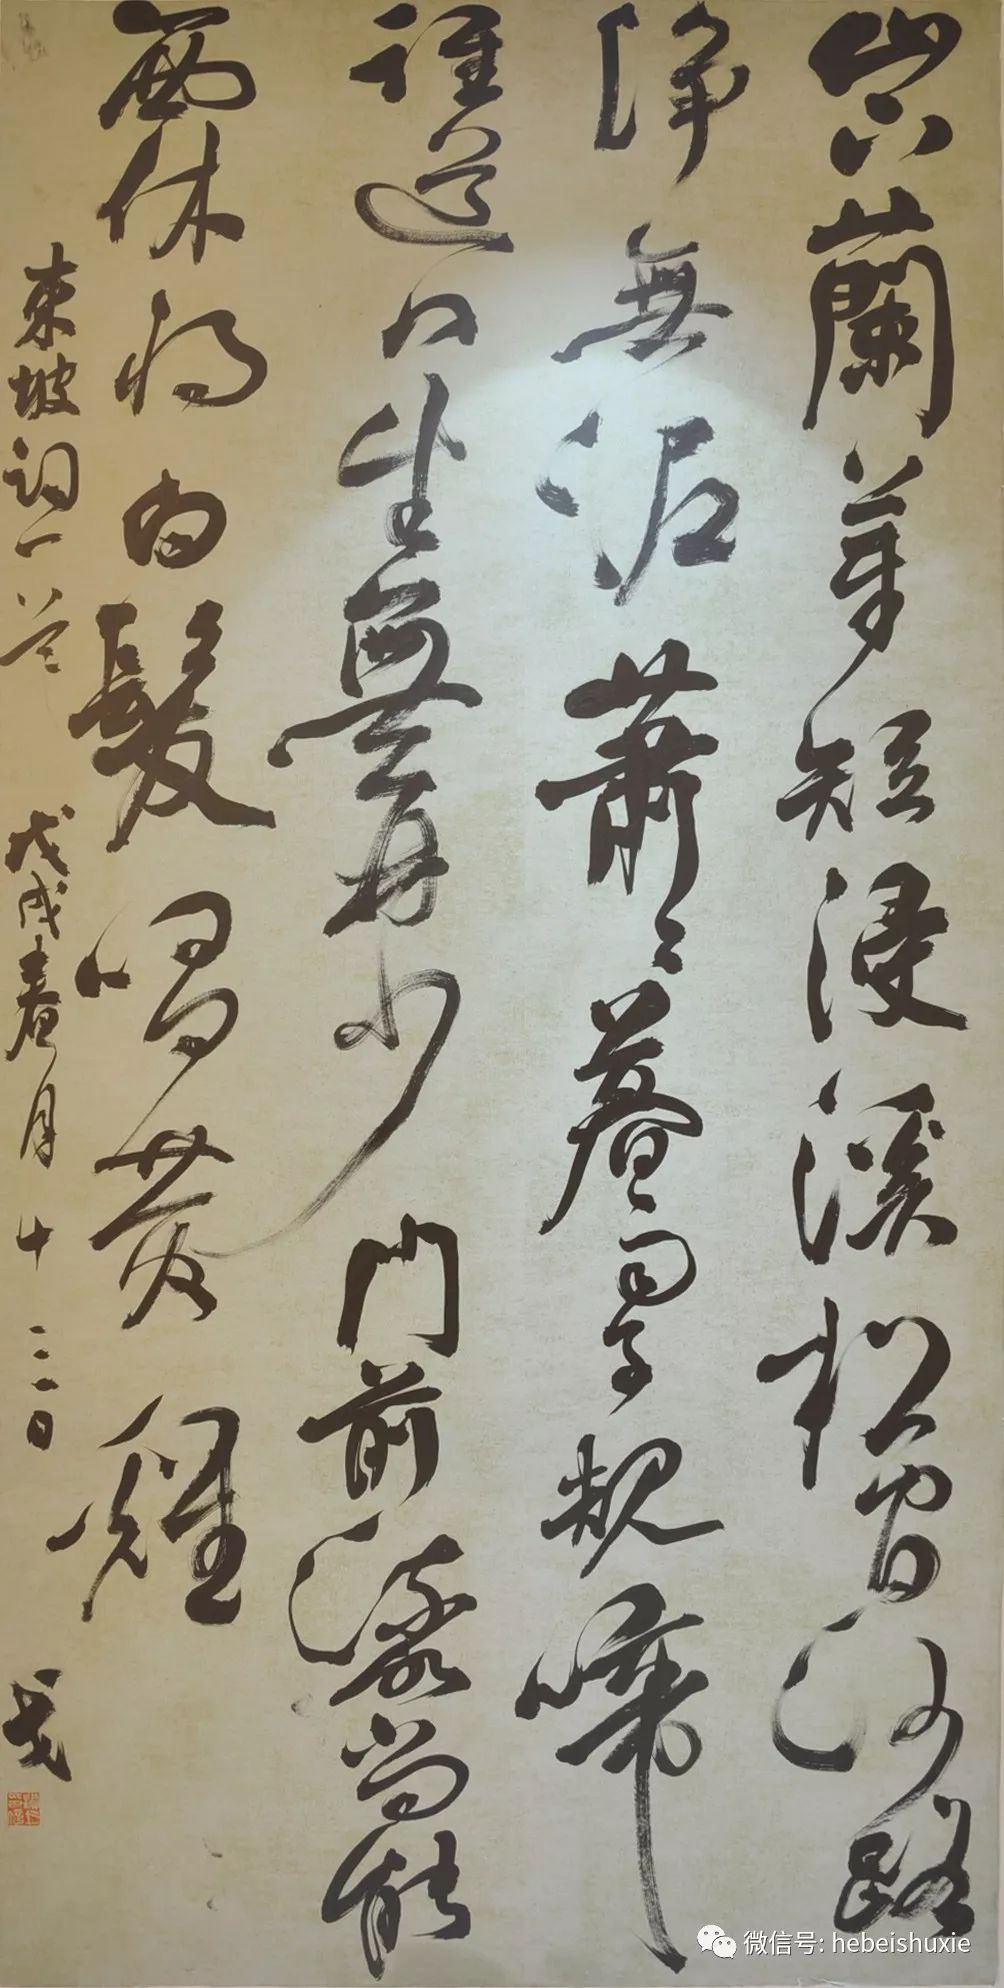 山下蘭芽短浸溪松間沙路
淨無泥蕭〻暮雨子規啼
誰道人生無再少門前流水尚能
西休將白髮唱黃雞
東坡詞一首 戊戌春月十三日
微信号: hebeishuxie